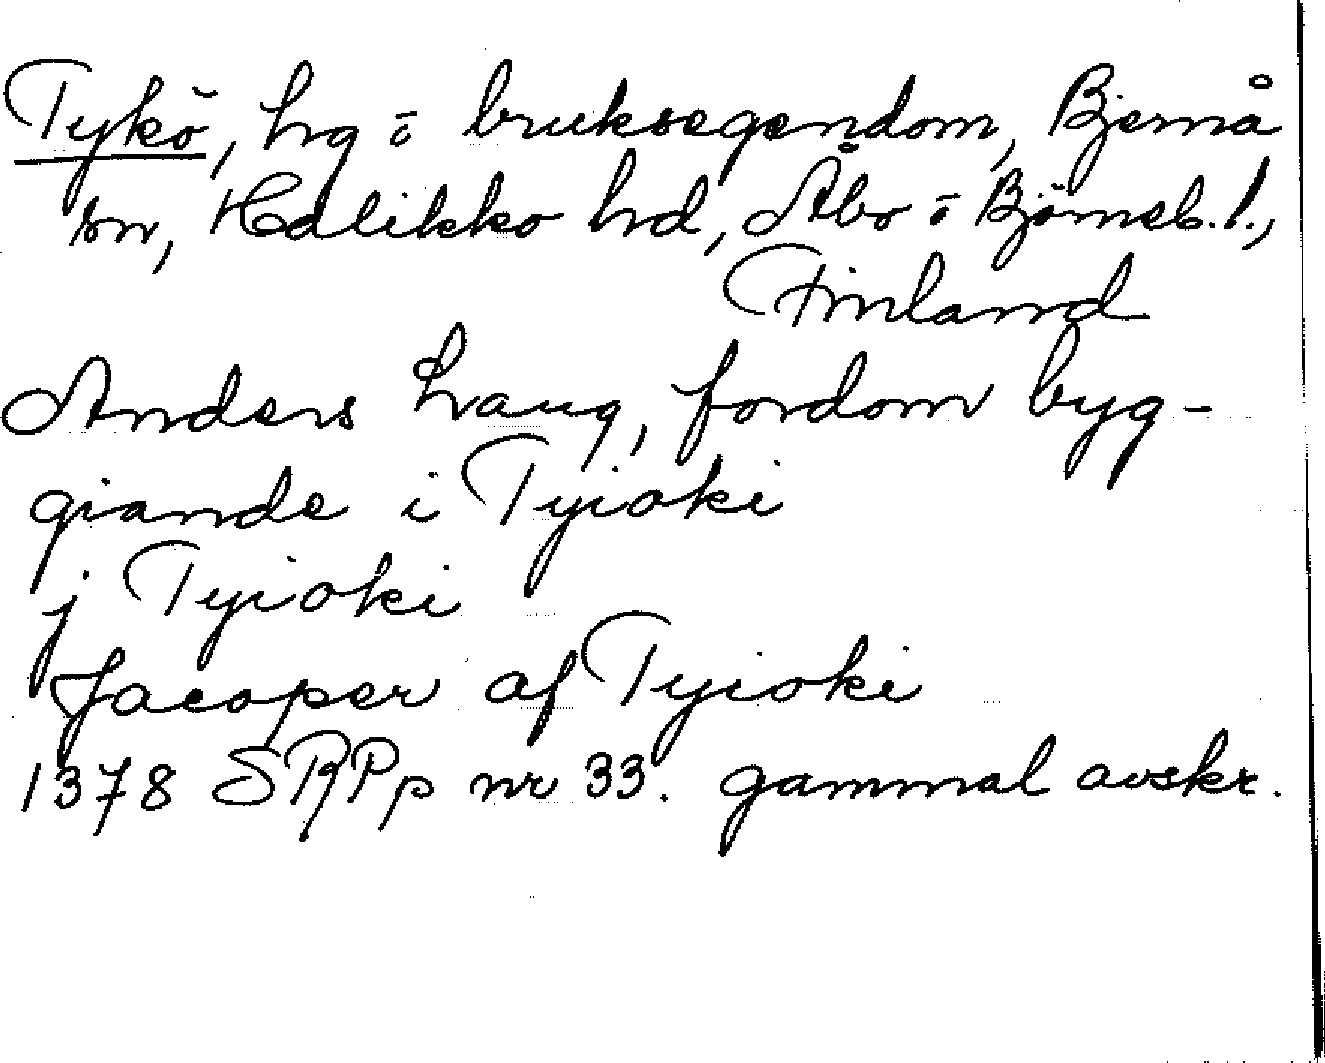 Tykö, hg o bruksegendom, Bjernå
sn, Halikko hd, Åbo o Björneb. l.,
Finland
Anders haug, fordom byg-
giande i Tyioki
j Tyioki
Jacoper af Tyioki
1378 SRPp nr 33. gammal avskr.